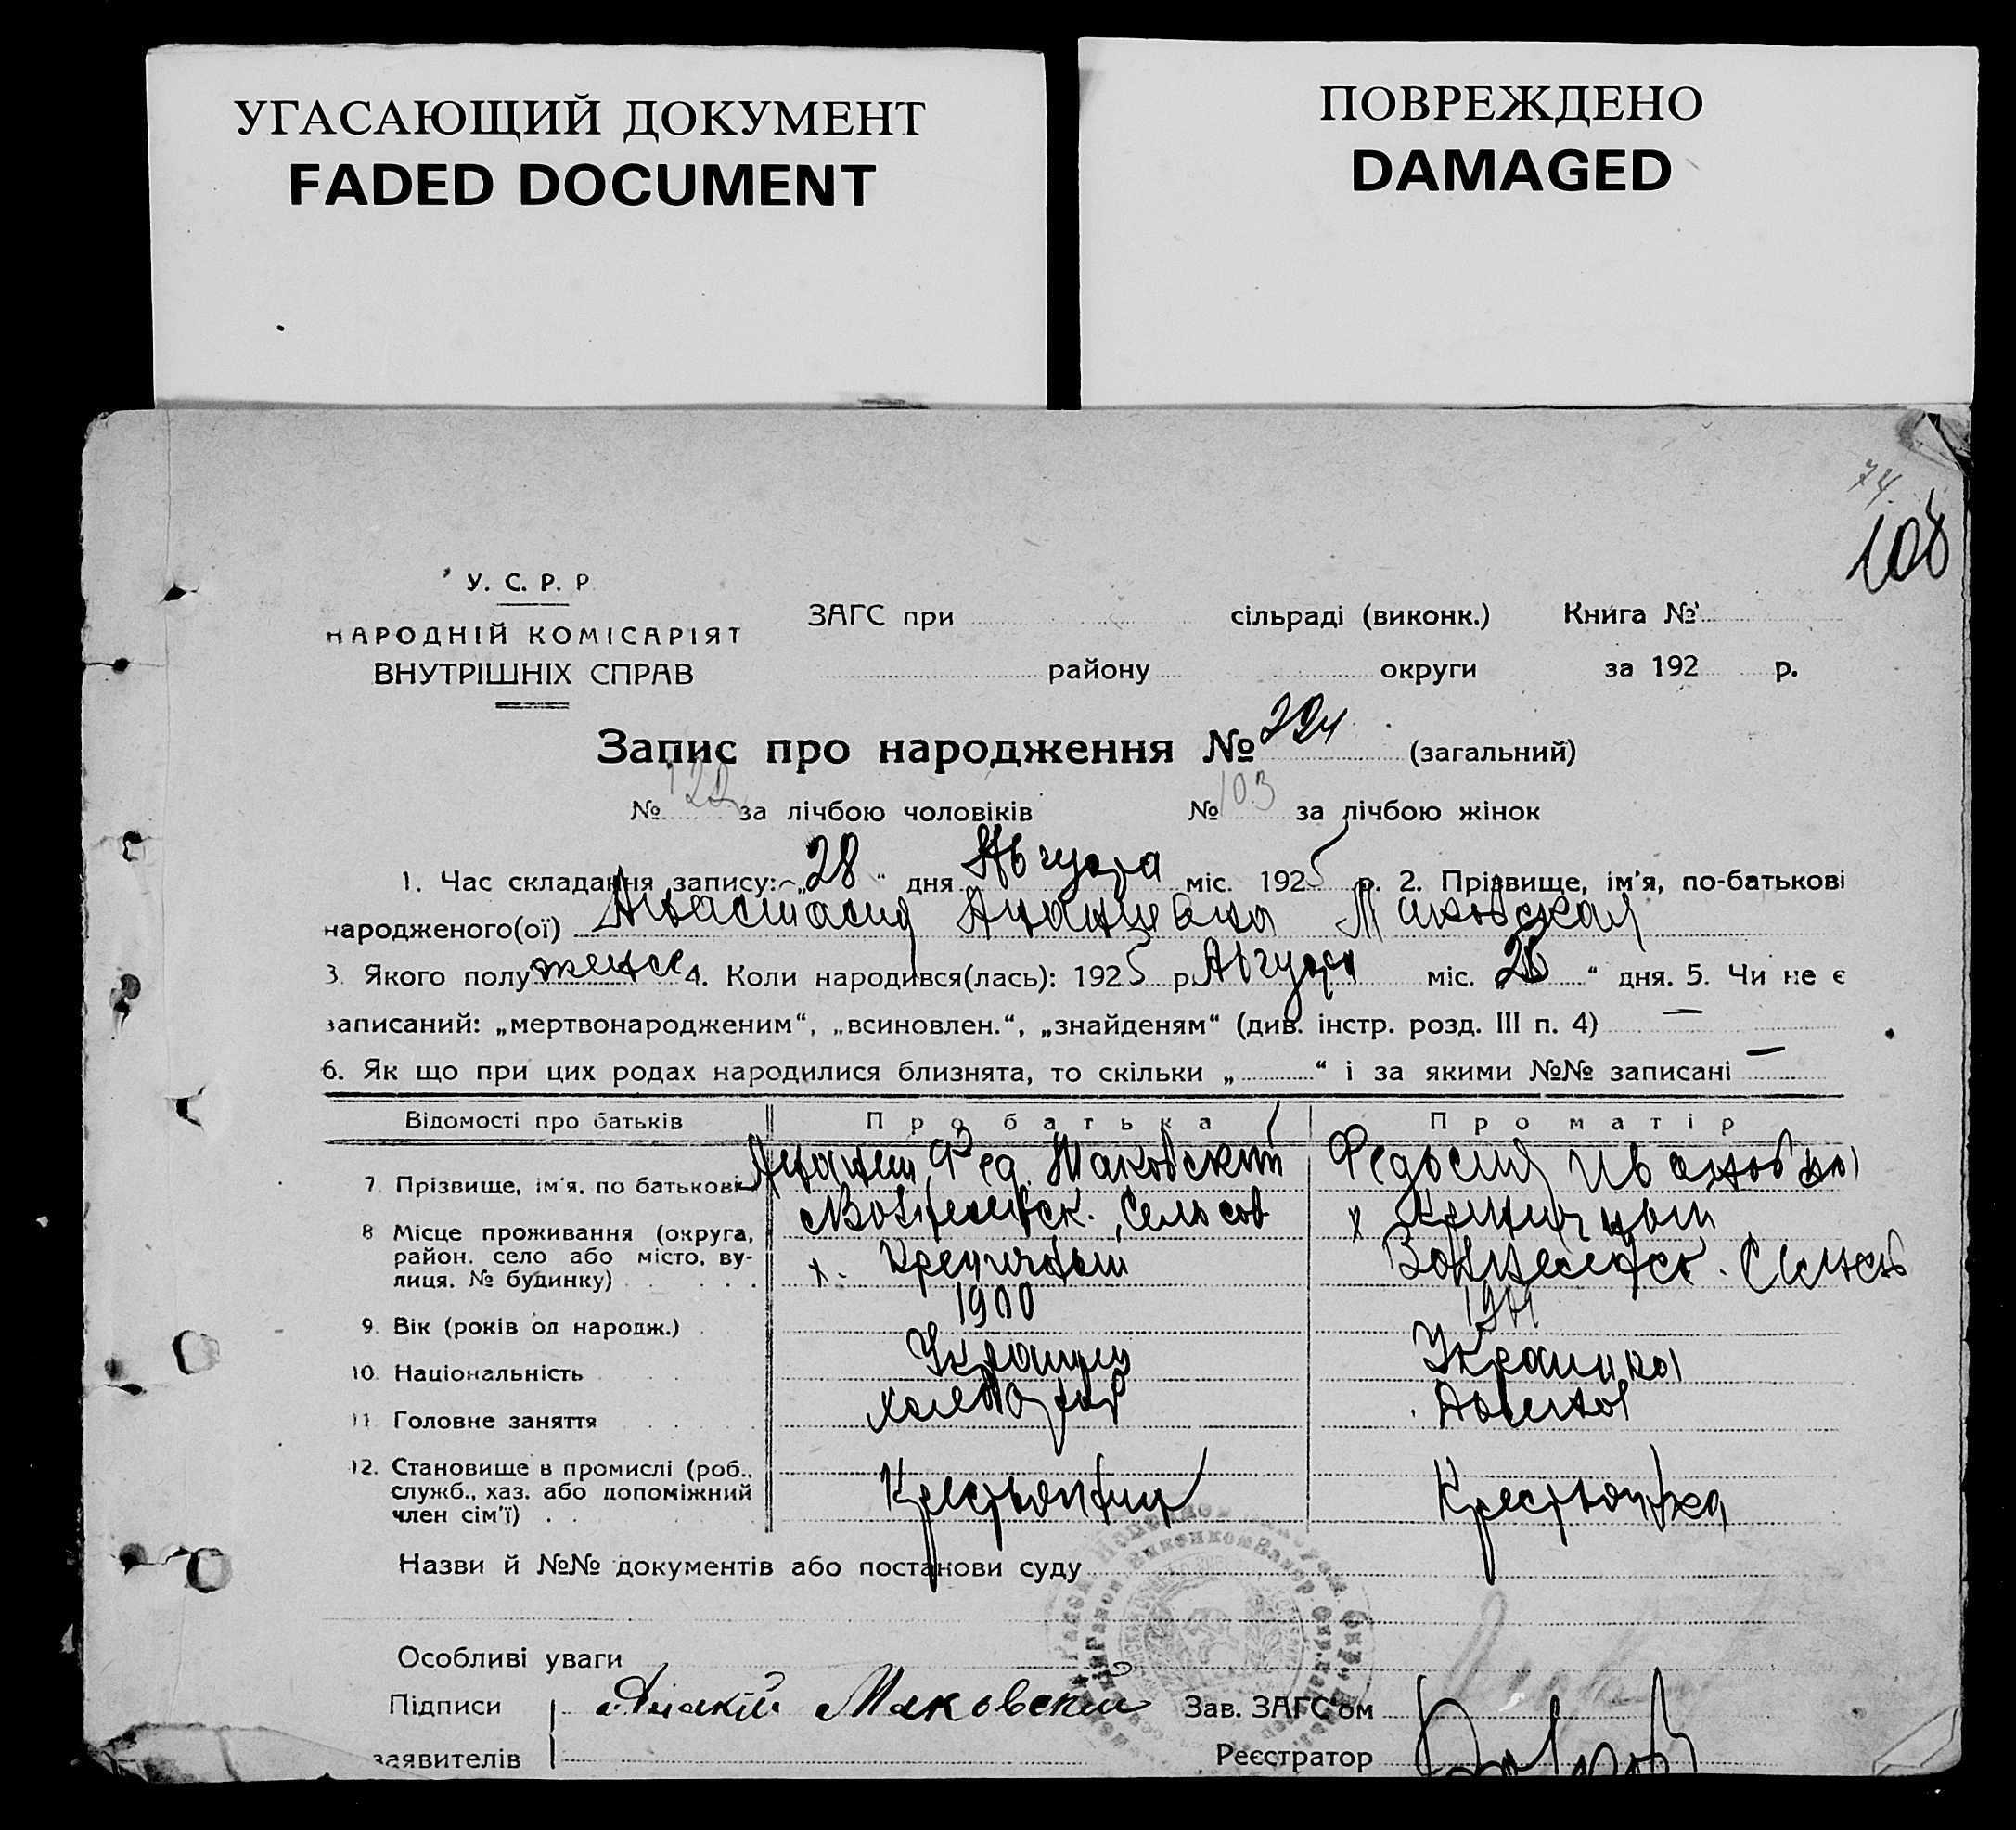 УГАСАЮЩИЙ ДОКУМЕНТ
FADED DOCUMENT
ПОВРЕЖДЕНО
DAMAGED
74.
108
У. С. Р. Р
НАРОДНІЙ КОМІСАРІЯТ
ВНУТРІШНІХ СПРАВ
ЗАГС при сільраді (виконк.) Книга №
району округи за 192 р.
Запис про народження № 224 (загальний)
№ за лічбою чоловіків № 103 за лічбою жінок
1. Час складання запису: „28“ дня Августа міс. 1925 р. 2. Прізвище, ім'я, по-батькові
народженого(ої) Анастасия Маковская
3. Якого полу женск 4. Коли народився(лась): 1925 р. Августа міс. „ “ дня. 5. Чи не є
записаний: „мертвонародженим“, „всиновлен.“, „знайденям“ (див. інстр. розд. III п. 4) —
6. Як що при цих родах народилися близнята, то скільки „ “ і за якими №№ записані —
Відомості про батьків Про батька Про матір
7. Прізвище, ім'я, по батькові Фед. Маковский Федосия Ивановна
8 Місце проживання (округа, район, село або місто, вулиця, № будинку) Вознесенск. Сельсов х. х Вознесенск. Сельсов
9. Вік (років од народж.) 1900 1901
10. Національність Украинец Украинка
11. Головне заняття Хлебороб
12. Становище в промислі (роб., служб., хаз. або допоміжний член сім'ї) Крестьянин Крестьянка
Назви й №№ документів або постанови суду
Особливі уваги
Підписи Маковский Зав. ЗАГС'ом
заявителів Реєстратор